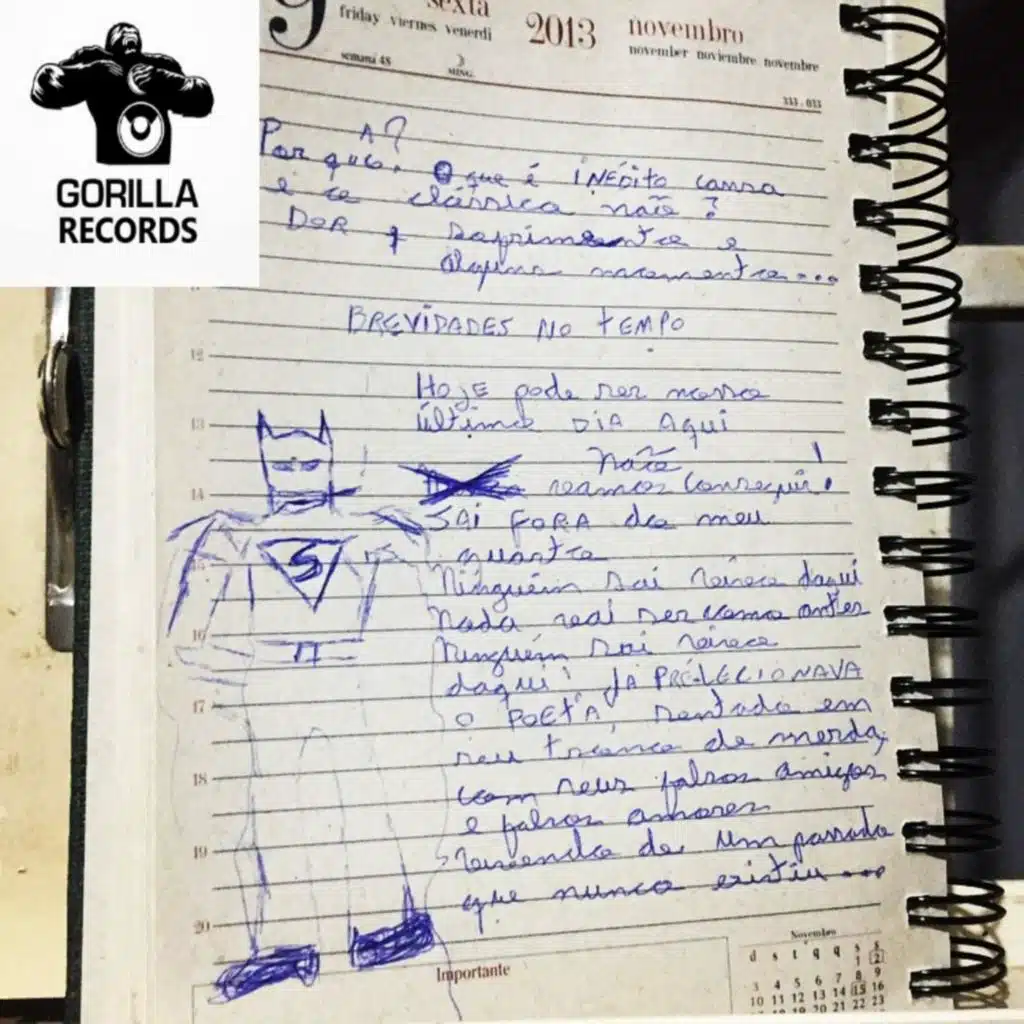 GORILLA
RECORDS
9
sexta
friday viernes venerdi
2013
novembro
november noviembre novembre
semana 48
MING.
333 . 033
A?
Por que, O que é INÉDITO cansa
e o clássico não?
DOR + sofrimento e
alguns momentos...
BREVIDADES NO TEMPO
Hoje pode ser nosso
último DIA Aqui
Não
vamos conseguir!
SAI FORA do meu
quarto
Ninguém sai vivo daqui
Nada vai ser como antes
Ninguém sai vivo
daqui! JÁ PRÉLECIONAVA
O POETA, sentado em
seu trono de merda,
com seus falsos amigos
e falsos amores
vivendo de um passado
que nunca existiu...
12
13
14
15
16
17
18
19
20
S
Importante
Novembro
d s t q q s s
1 2
3 4 5 6 7 8 9
10 11 12 13 14 15 16
17 18 19 20 21 22 23